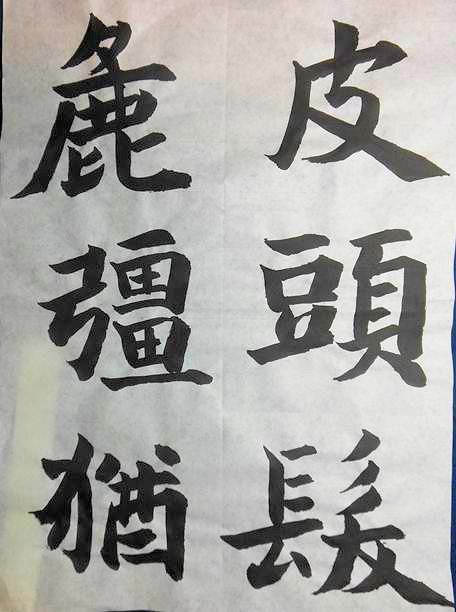 皮頭髮
麁彊猶